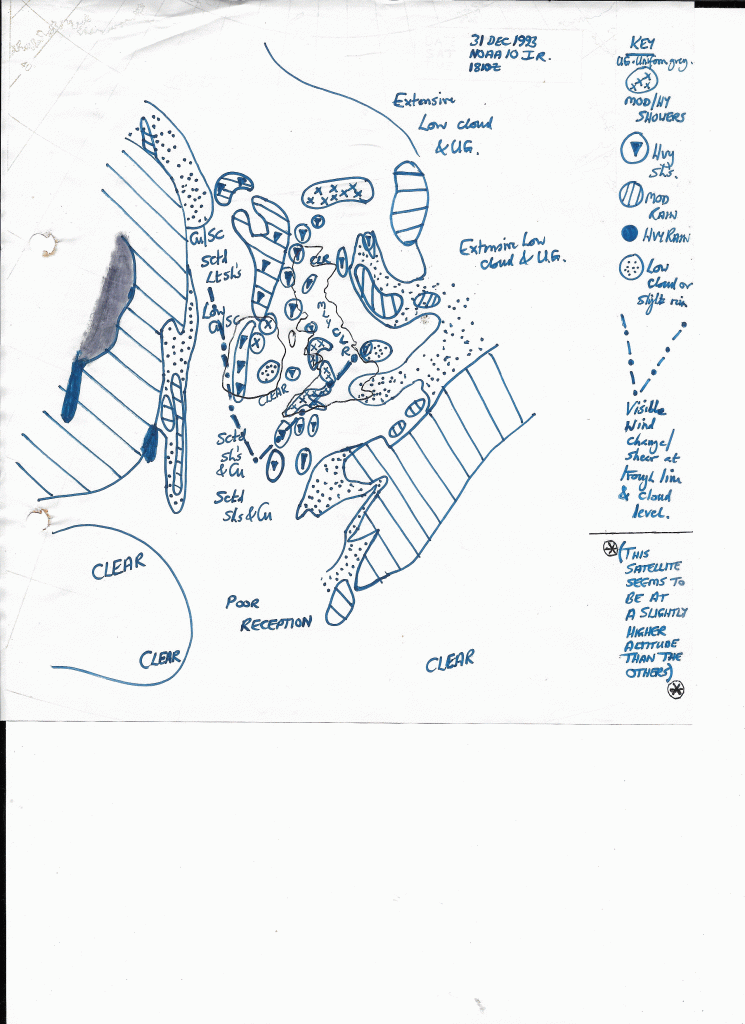 31 DEC 1993
NOAA 10 I.R.
1810Z
Extensive
Low cloud
& U.G.
Cu/SC
Sctd
Lt Sh's
Extensive Low
cloud & U.G.
CLR
Low
Cu/SC
CLEAR
Sctd
Sh's
& Cu
Sctd
Shs & Cu
CLEAR
CLEAR
POOR
RECEPTION
CLEAR
KEY
UG - Uniform grey.
MOD/HY
SHOWERS
Hvy
Sh's.
MOD
RAIN
HVY RAIN
Low
cloud or
slight rain
Visible
Wind
change/
shear at
trough line
& cloud
level.
(THIS
SATELLITE
SEEMS TO
BE AT
A SLIGHTLY
HIGHER
ALTITUDE
THAN THE
OTHERS)